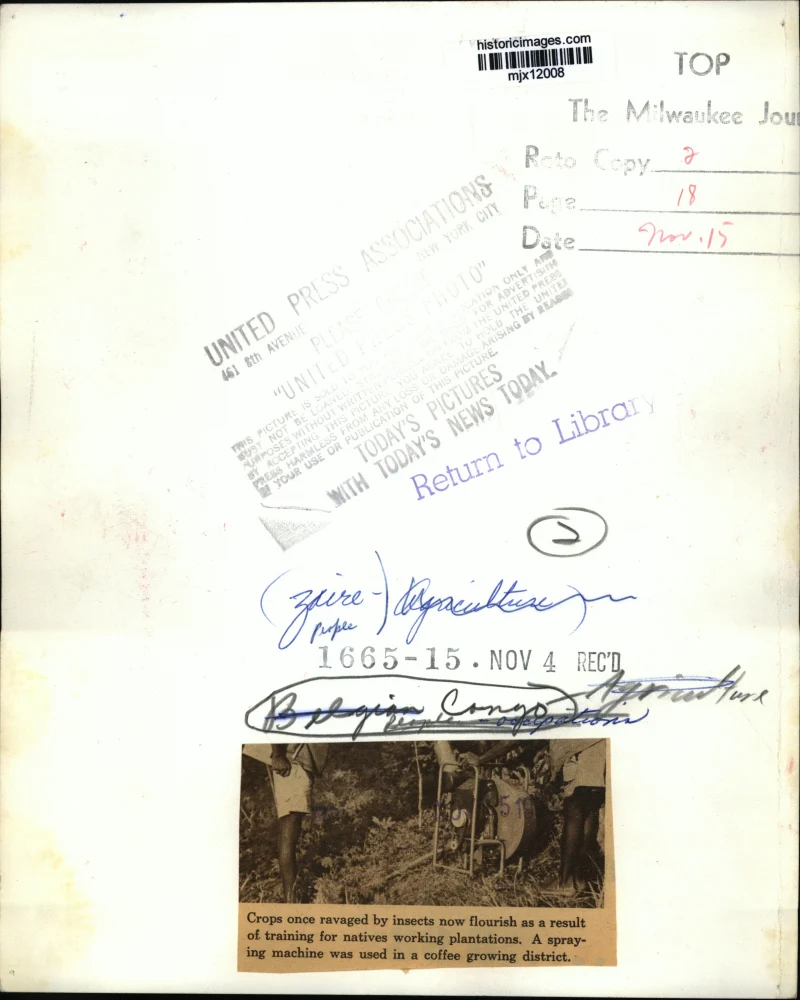 historicimages.com
mjx12008
TOP
The Milwaukee Jou
Roto Copy 2
Page 18
Date Nov. 15
UNITED PRESS ASSOCIATIONS
461 8th AVENUE NEW YORK CITY
PLEASE
"UNITED PHOTO"
THIS PICTURE IS SOLD TO ATION ONLY AND
MUST NOT BE LOANED, FOR ADVERTISING
PURPOSES WITHOUT WRITTEN THE UNITED PRESS
BY ACCEPTING THIS PICTURE YOU AGREE TO HOLD THE UNITED
PRESS HARMLESS FROM ANY LOSS OR DAMAGE ARISING BY REASON
OF YOUR USE OR PUBLICATION OF THIS PICTURE.
TODAY'S PICTURES
WITH TODAY'S NEWS TODAY.
Return to Library
2
(Zaire-) Agriculture
people
1665-15. NOV 4 REC'D
Belgian Congo Agriculture
people - occupations
51
Crops once ravaged by insects now flourish as a result
of training for natives working plantations. A spray-
ing machine was used in a coffee growing district.